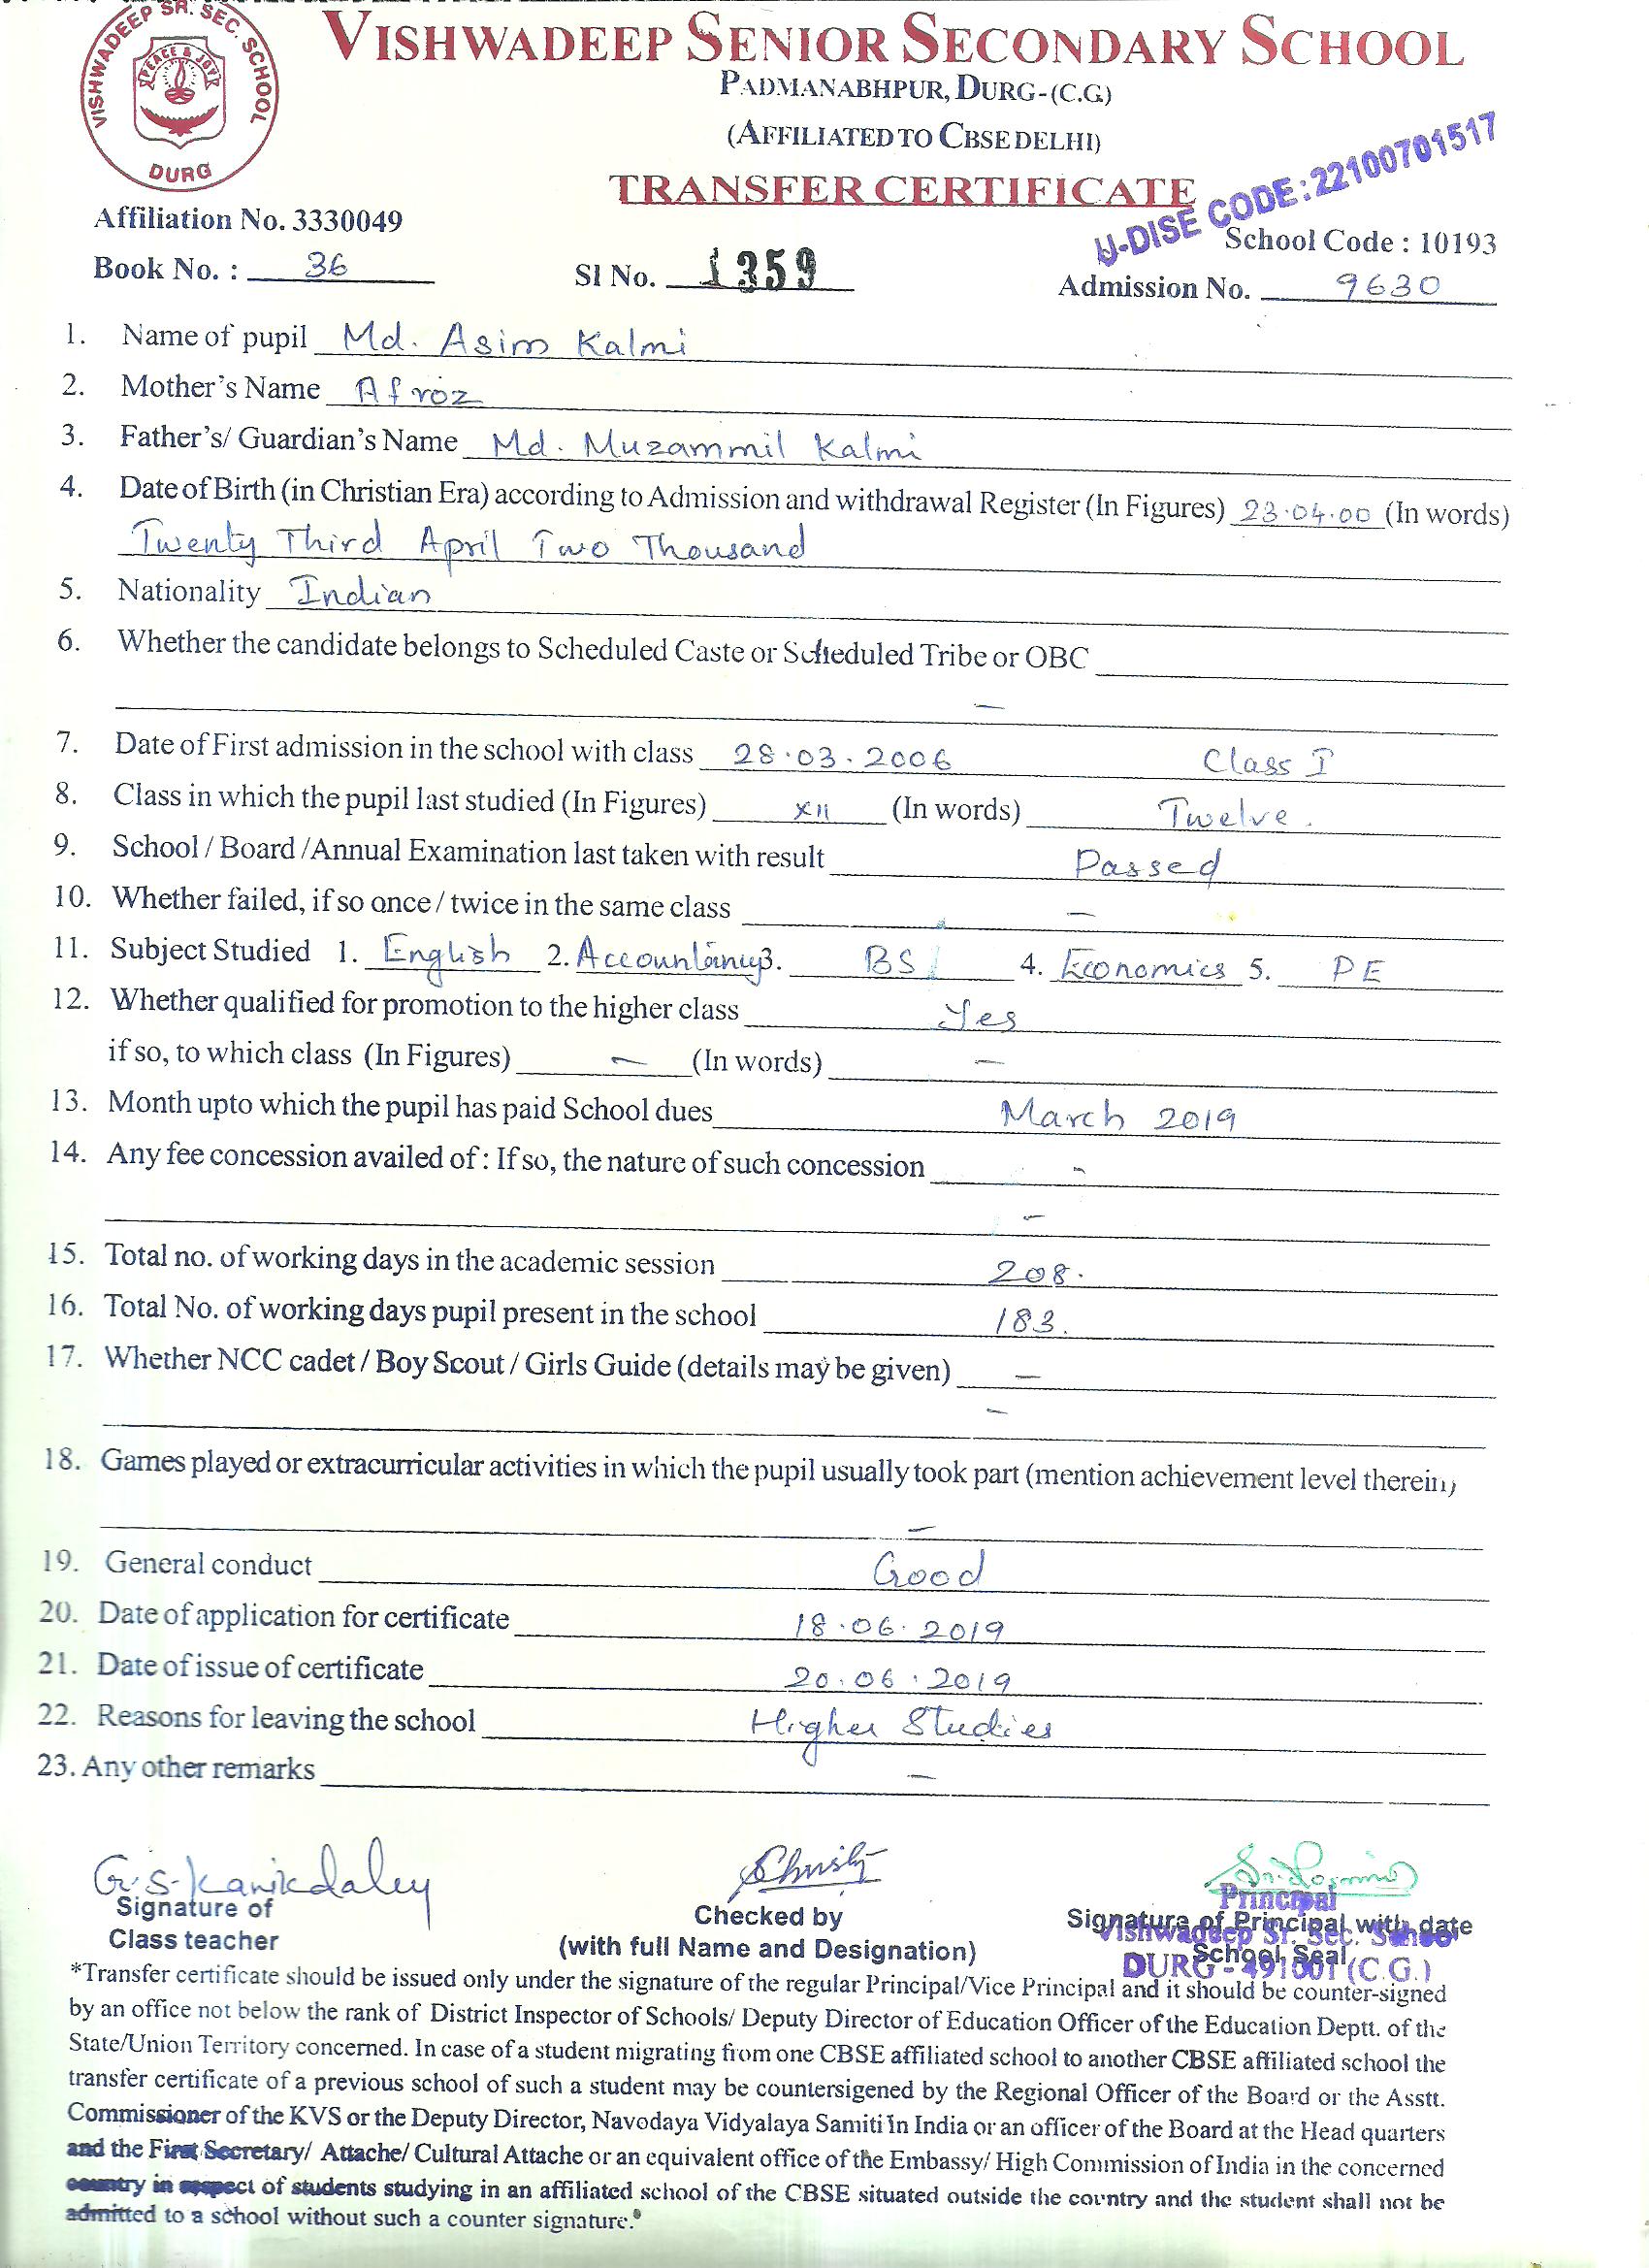 VISHWADEEP SR. SEC. SCHOOL
PEACE & JOY
DURG
VISHWADEEP SENIOR SECONDARY SCHOOL
PADMANABHPUR, DURG-(C.G.)
(AFFILIATED TO CBSE DELHI)
TRANSFER CERTIFICATE
U-DISE CODE:22100701517
Affiliation No. 3330049
School Code : 10193
Book No. : 36 Sl No. 1359 Admission No. 9630
1. Name of pupil Md. Asim Kalmi
2. Mother's Name Afroz
3. Father's/ Guardian's Name Md. Muzammil Kalmi
4. Date of Birth (in Christian Era) according to Admission and withdrawal Register (In Figures) 23.04.00 (In words)
Twenty Third April Two Thousand
5. Nationality Indian
6. Whether the candidate belongs to Scheduled Caste or Scheduled Tribe or OBC
—
7. Date of First admission in the school with class 28.03.2006 Class I
8. Class in which the pupil last studied (In Figures) XII (In words) Twelve.
9. School / Board /Annual Examination last taken with result Passed
10. Whether failed, if so once / twice in the same class —
11. Subject Studied 1. English 2. Accountancy 3. BS 4. Economics 5. PE
12. Whether qualified for promotion to the higher class Yes
if so, to which class (In Figures) — (In words) —
13. Month upto which the pupil has paid School dues March 2019
14. Any fee concession availed of : If so, the nature of such concession -
-
15. Total no. of working days in the academic session 208.
16. Total No. of working days pupil present in the school 183.
17. Whether NCC cadet / Boy Scout / Girls Guide (details may be given) —
-
18. Games played or extracurricular activities in which the pupil usually took part (mention achievement level therein)
—
19. General conduct Good
20. Date of application for certificate 18.06.2019
21. Date of issue of certificate 20.06.2019
22. Reasons for leaving the school Higher Studies
23. Any other remarks —
Signature of
Class teacher
Checked by
(with full Name and Designation)
Principal
Signature of Principal with date
Vishwadeep Sr. Sec. School
School Seal
DURG - 491001 (C.G.)
*Transfer certificate should be issued only under the signature of the regular Principal/Vice Principal and it should be counter-signed
by an office not below the rank of District Inspector of Schools/ Deputy Director of Education Officer of the Education Deptt. of the
State/Union Territory concerned. In case of a student migrating from one CBSE affiliated school to another CBSE affiliated school the
transfer certificate of a previous school of such a student may be countersigened by the Regional Officer of the Board or the Asstt.
Commissioner of the KVS or the Deputy Director, Navodaya Vidyalaya Samiti in India or an officer of the Board at the Head quarters
and the First Secretary/ Attache/ Cultural Attache or an equivalent office of the Embassy/ High Commission of India in the concerned
country in respect of students studying in an affiliated school of the CBSE situated outside the country and the student shall not be
admitted to a school without such a counter signature.*